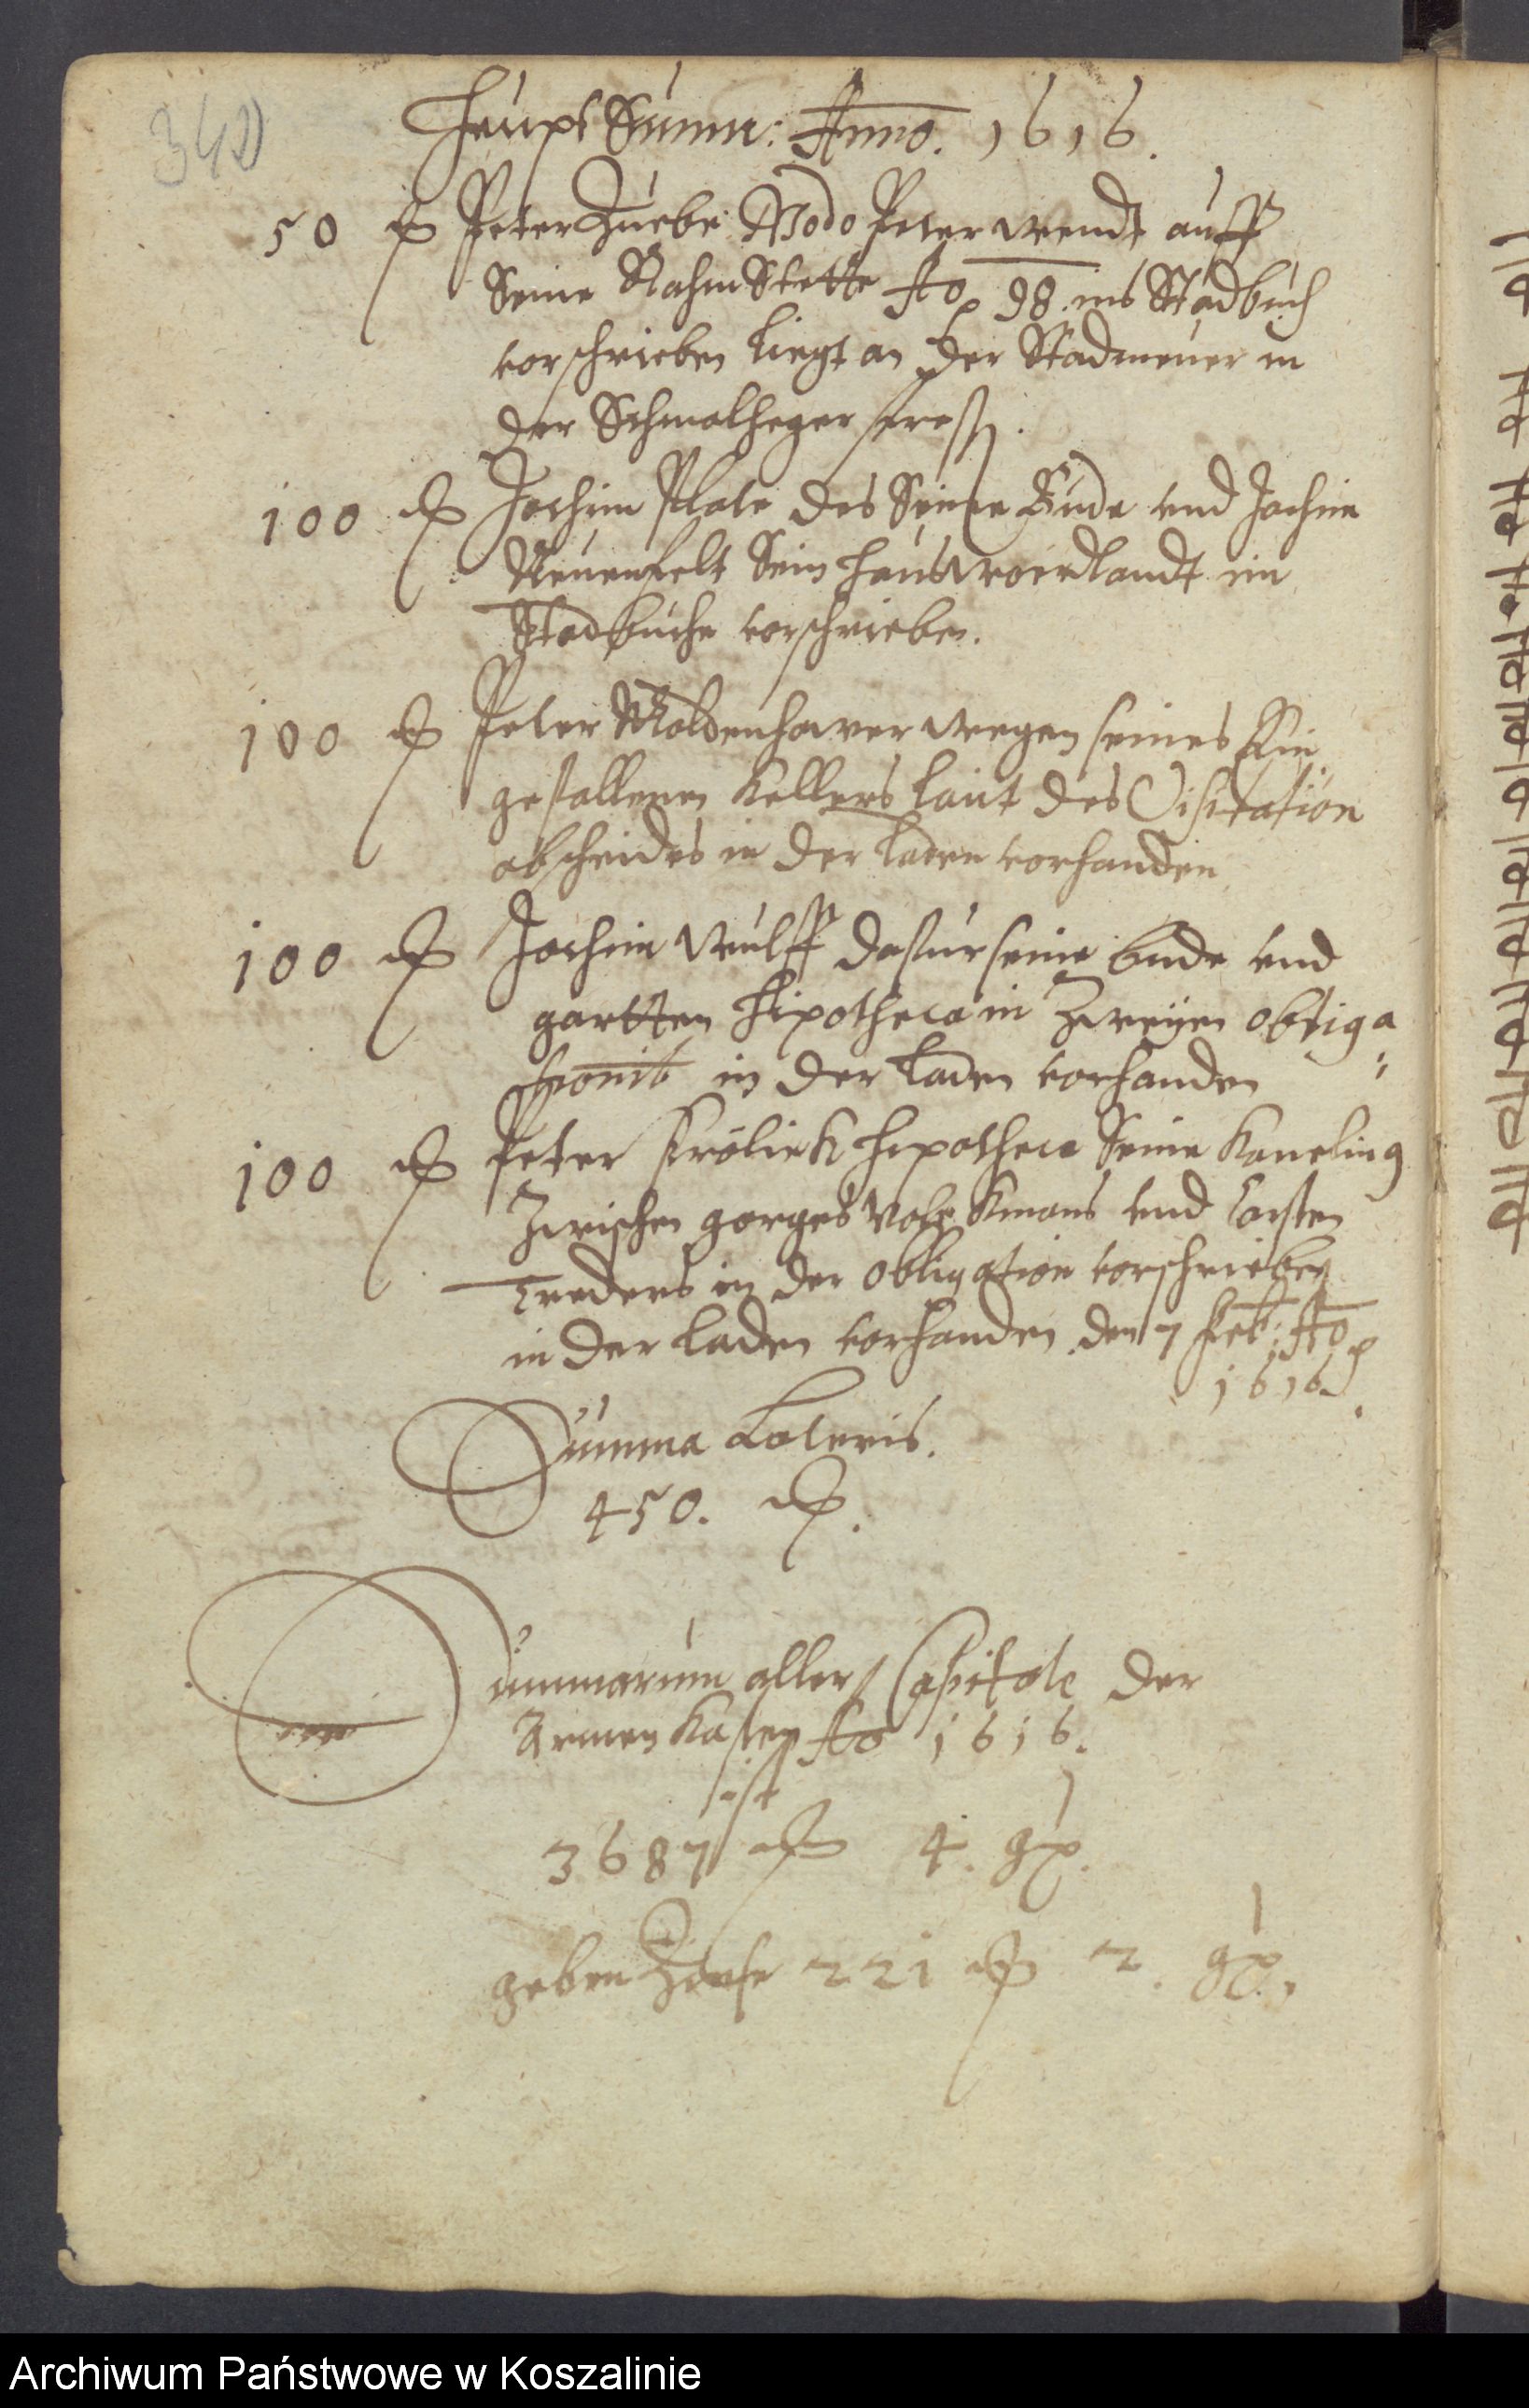 340
Heupt Summe: Anno. 1616.
50 fl Peter Zuebe Modo Peter Wendt auff
Seine RahmStette Ao 98. ins Stadbuch
vorschrieben liegt an der Stadmeuer in
der Schmalheger
100 fl Jochim Plate des Seine Bude vnd Jochim
Neuenfelt Sein Haus landt im
Stadbuche vorschrieben.
100 fl Peter Moldenhawer wegen seines Ein
gefallenen Kellers laut des Visitation
abscheides in der laden vorhanden
100 fl Jochim Wulff dafur seine bude vnd
gartten Hipotheca in Zweyen obliga
tionib in der Laden vorhanden
100 fl Peter Kröliek Hipotheca Seine Kaneling
Zwischen gorges Volckmans vnd Carsten
Treders in der obligation vorschrieben
in der laden vorhanden den 7 Feb: Ao
1616.
Summa Lateris.
450. fl.
Summarum aller Capitale der
Armen Kasten Ao 1616.
ist
3687 fl 4. gr.
geben Zinse 221 fl 2. gr.
Archiwum Państwowe w Koszalinie